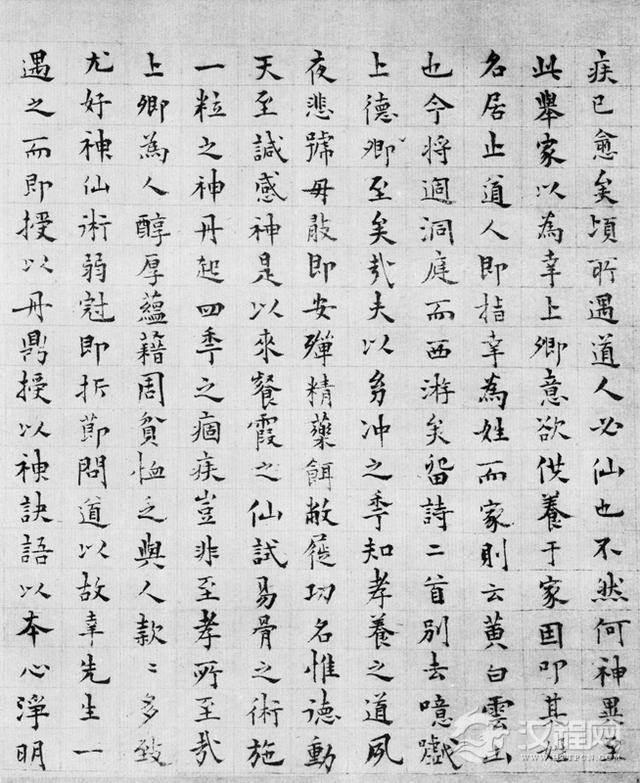 疾已愈矣頃所遇道人必仙也不然何神異至
此舉家以為幸上卿意欲供養于家因叩其姓
名居止道人即指幸為姓而家則云黃白雲山
也今將過洞庭而西游矣留詩二首別去噫戲
上德卿至矣哉夫以幼冲之秊知孝養之道夙
夜悲號毋敢即安殫精藥餌敝蓰功名惟德動
天至諴感神是以來餐霞之仙試易骨之術施
一粒之神丹起四秊之痼疾豈非至孝所至哉
上卿為人醇厚蘊藉周貧恤乏與人款〻多致
尤好神仙術弱冠即折節問道以故幸先生一
遇之而即授以丹鼎授以神訣語以本心淨明
汉程网